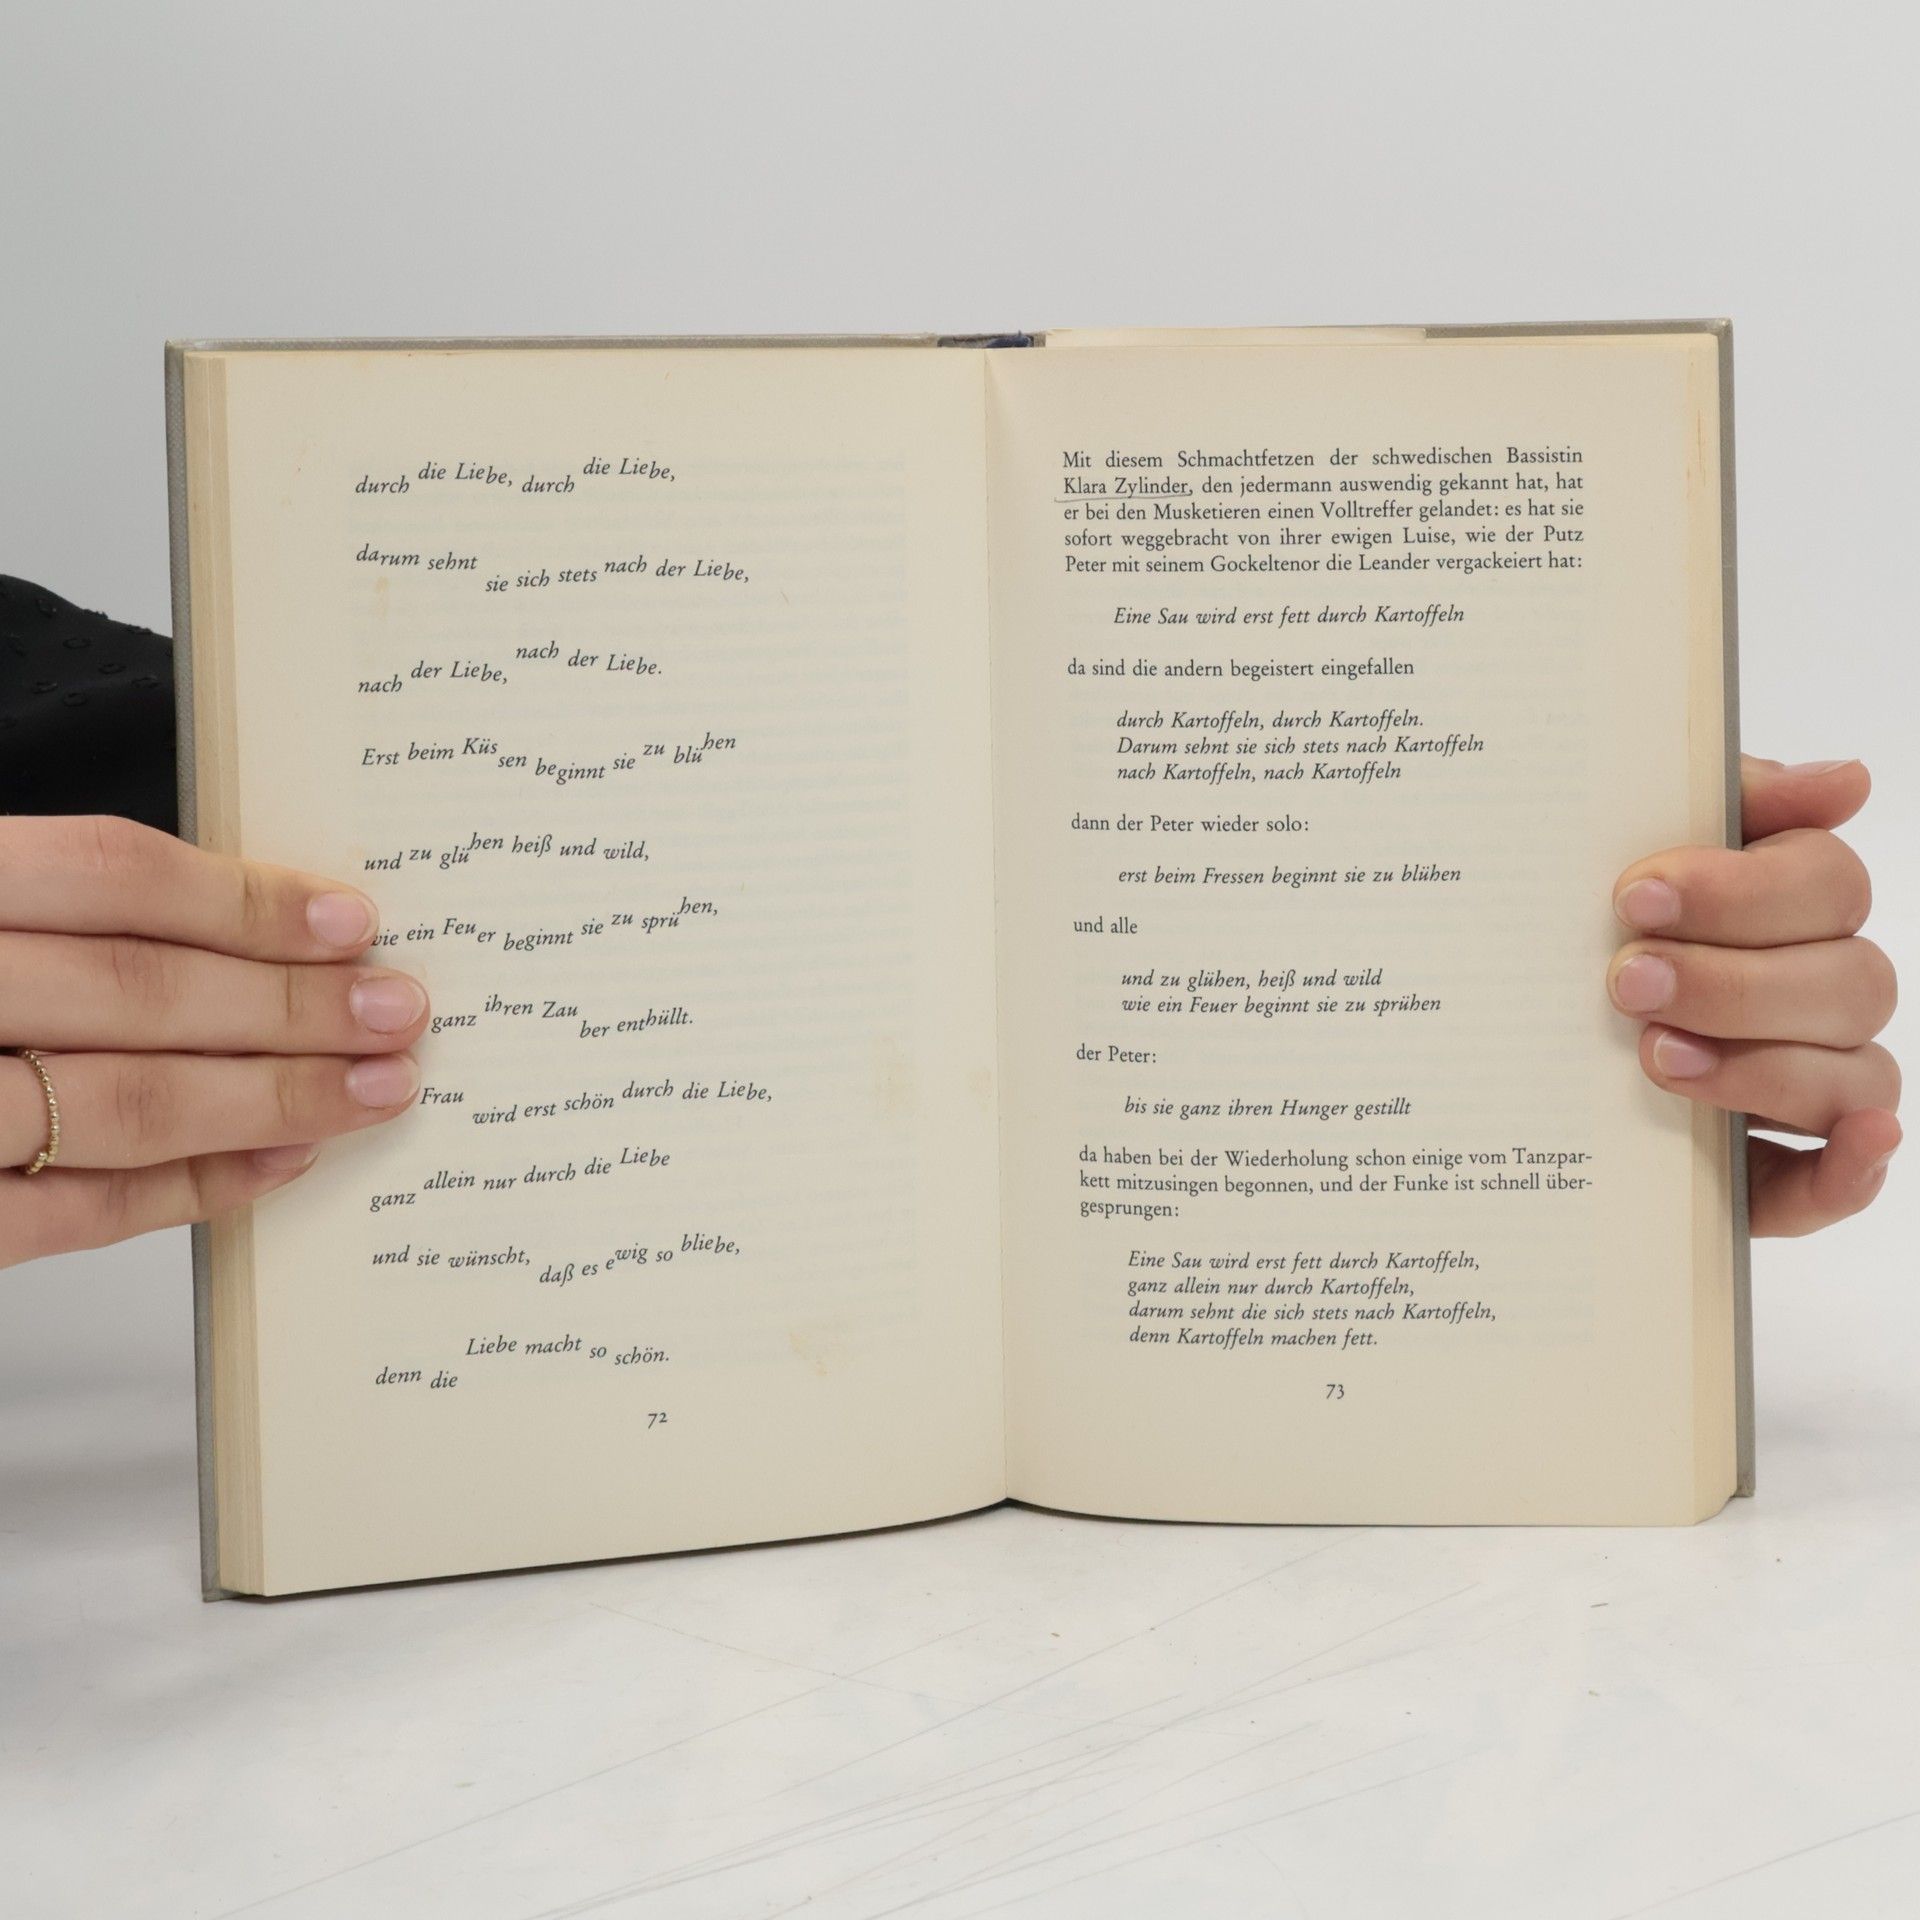 durch die Liebe, durch die Liebe,
darum sehnt sie sich stets nach der Liebe,
nach der Liebe, nach der Liebe.
Erst beim Küs sen beginnt sie zu blühen
und zu glühen heiß und wild,
wie ein Feuer beginnt sie zu sprühen,
ganz ihren Zau ber enthüllt.
Frau wird erst schön durch die Liebe,
ganz allein nur durch die Liebe
und sie wünscht, daß es ewig so bliebe,
denn die Liebe macht so schön.
72
Mit diesem Schmachtfetzen der schwedischen Bassistin
Klara Zylinder, den jedermann auswendig gekannt hat, hat
er bei den Musketieren einen Volltreffer gelandet: es hat sie
sofort weggebracht von ihrer ewigen Luise, wie der Putz
Peter mit seinem Gockeltenor die Leander vergackeiert hat:
Eine Sau wird erst fett durch Kartoffeln
da sind die andern begeistert eingefallen
durch Kartoffeln, durch Kartoffeln.
Darum sehnt sie sich stets nach Kartoffeln
nach Kartoffeln, nach Kartoffeln
dann der Peter wieder solo:
erst beim Fressen beginnt sie zu blühen
und alle
und zu glühen, heiß und wild
wie ein Feuer beginnt sie zu sprühen
der Peter:
bis sie ganz ihren Hunger gestillt
da haben bei der Wiederholung schon einige vom Tanzpar-
kett mitzusingen begonnen, und der Funke ist schnell über-
gesprungen:
Eine Sau wird erst fett durch Kartoffeln,
ganz allein nur durch Kartoffeln,
darum sehnt die sich stets nach Kartoffeln,
denn Kartoffeln machen fett.
73